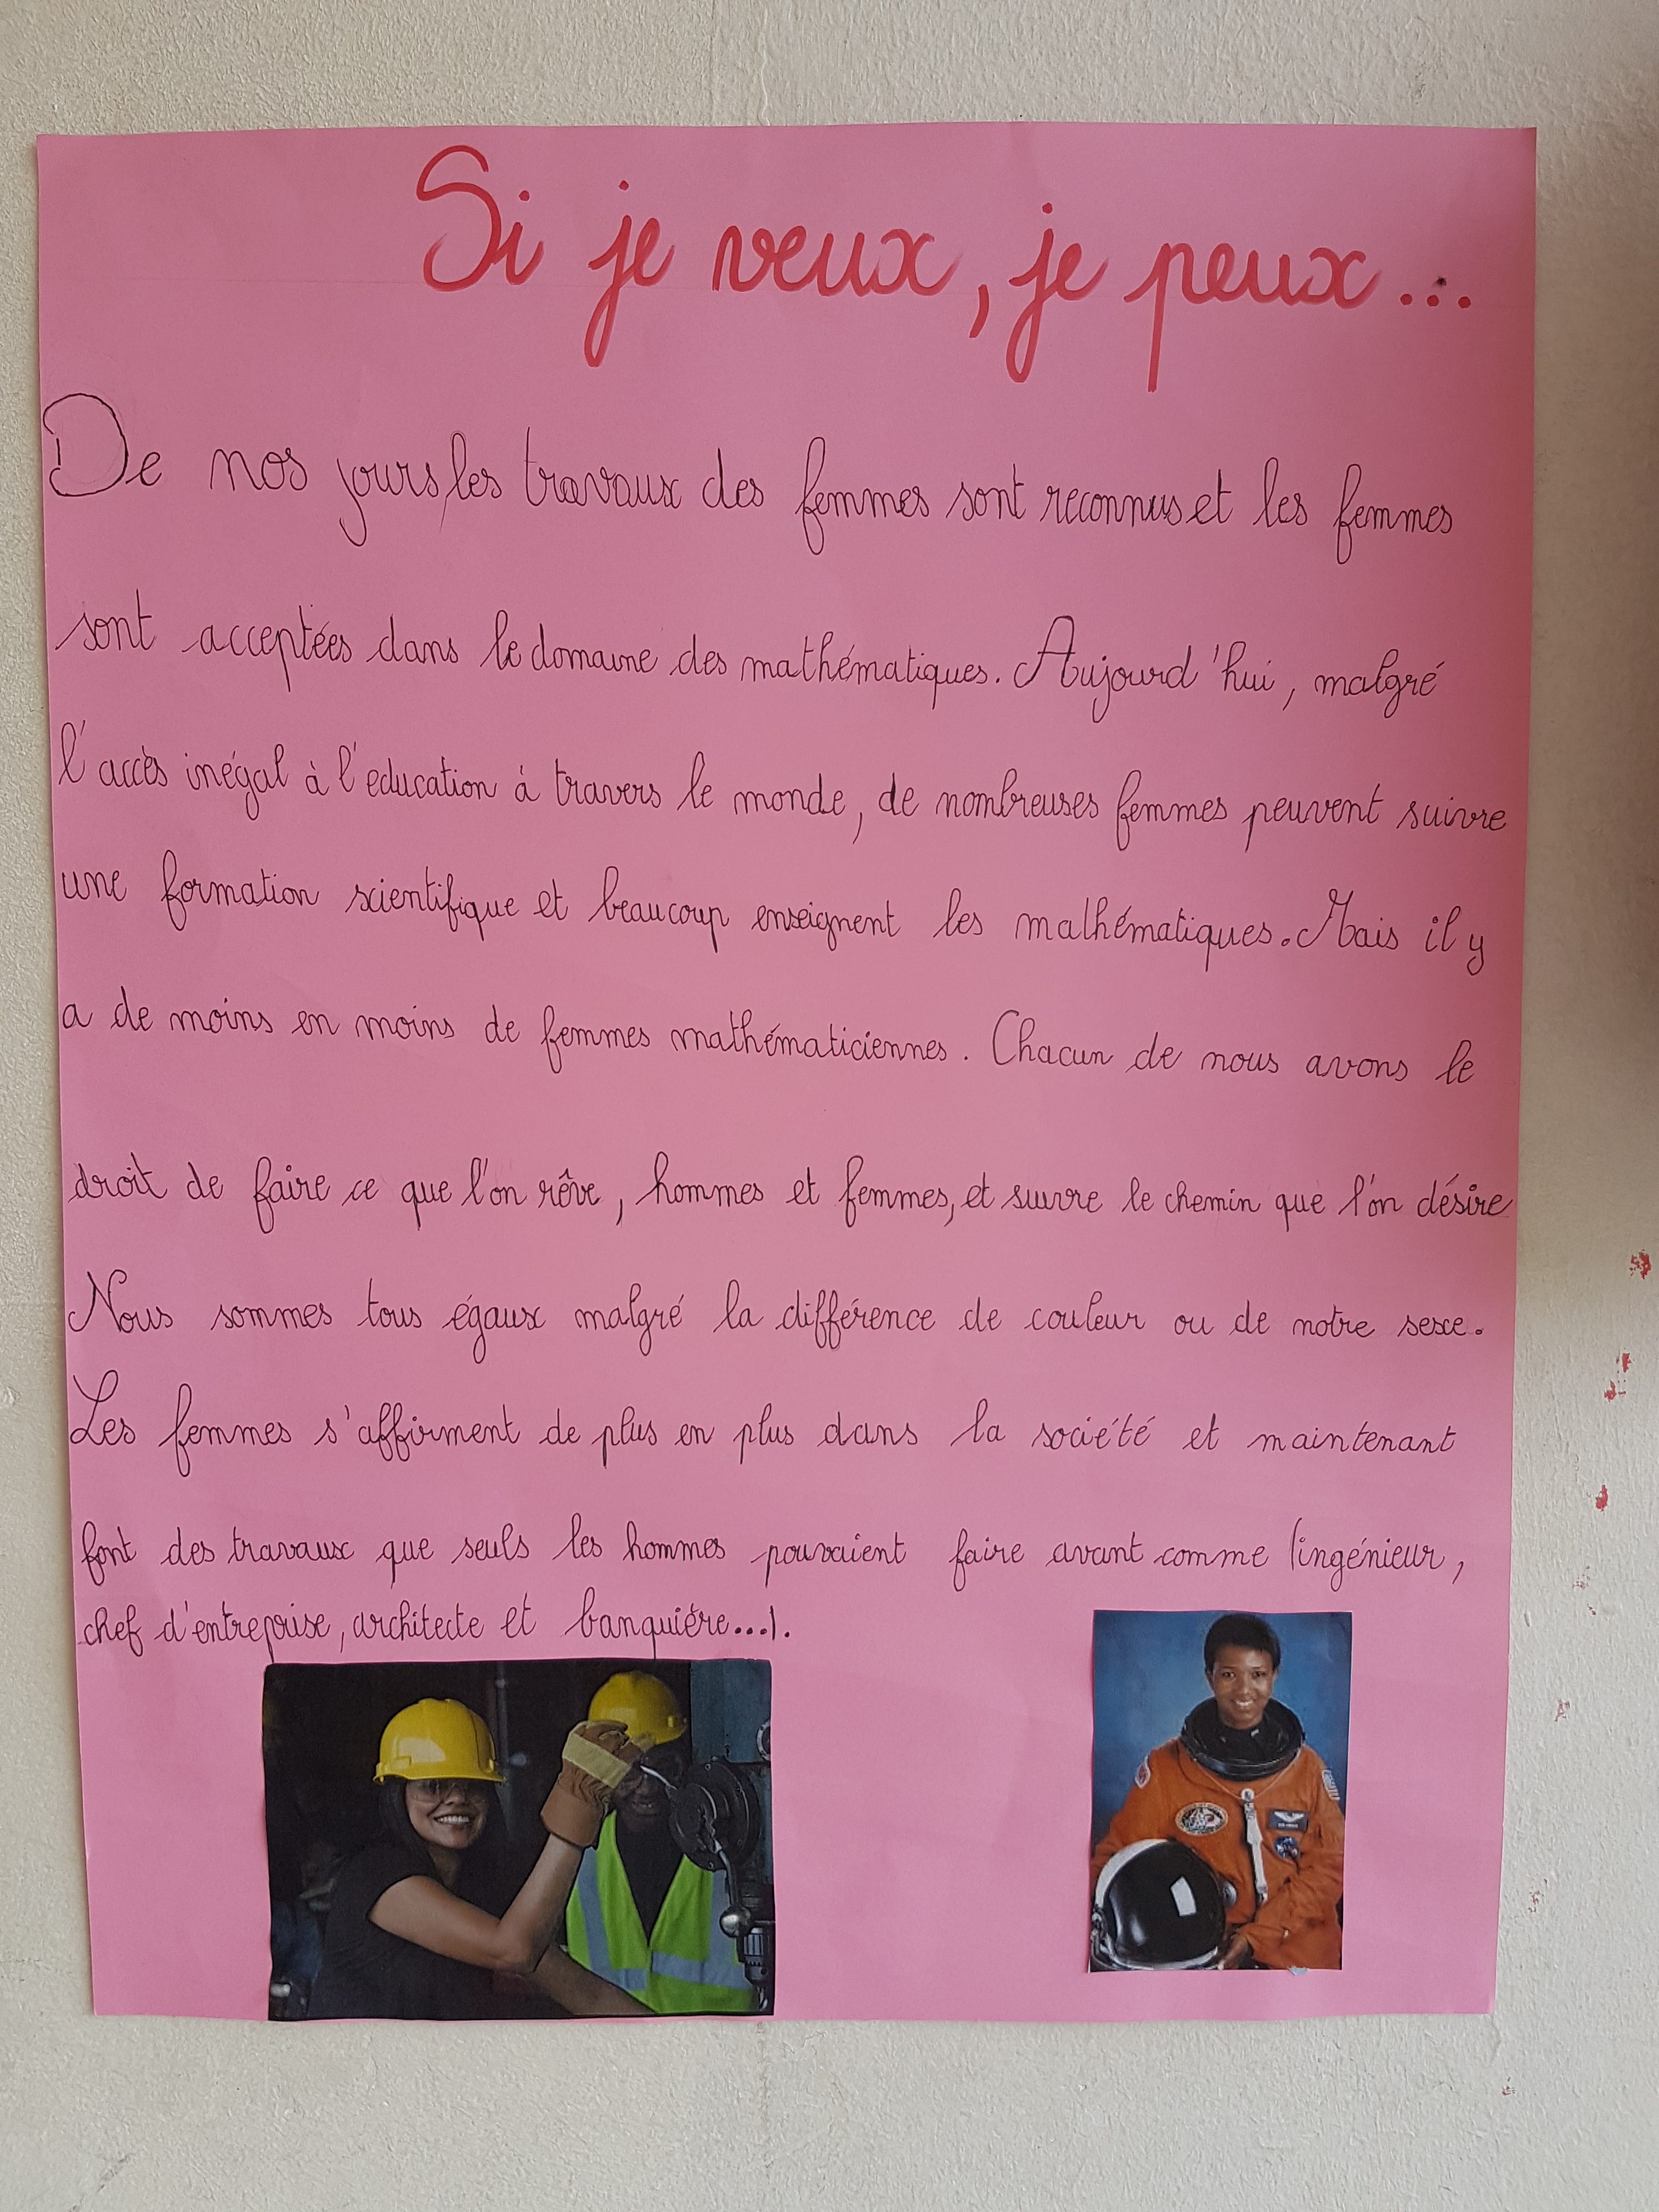 Si je veux, je peux...
De nos jours, les travaux des femmes sont reconnus et les femmes
sont acceptées dans le domaine des mathématiques. Aujourd'hui, malgré
l'accès inégal à l'education à travers le monde, de nombreuses femmes peuvent suivre
une formation scientifique et beaucoup enseignent les mathématiques. Mais il y
a de moins en moins de femmes mathématiciennes. Chacun de nous avons le
droit de faire ce que l'on rêve, hommes et femmes, et suivre le chemin que l'on désire
Nous sommes tous égaux malgré la différence de couleur ou de notre sexe.
Les femmes s'affirment de plus en plus dans la société et maintenant
font des travaux que seuls les hommes pouvaient faire avant comme (ingénieur,
chef d'entreprise, architecte et banquière...).